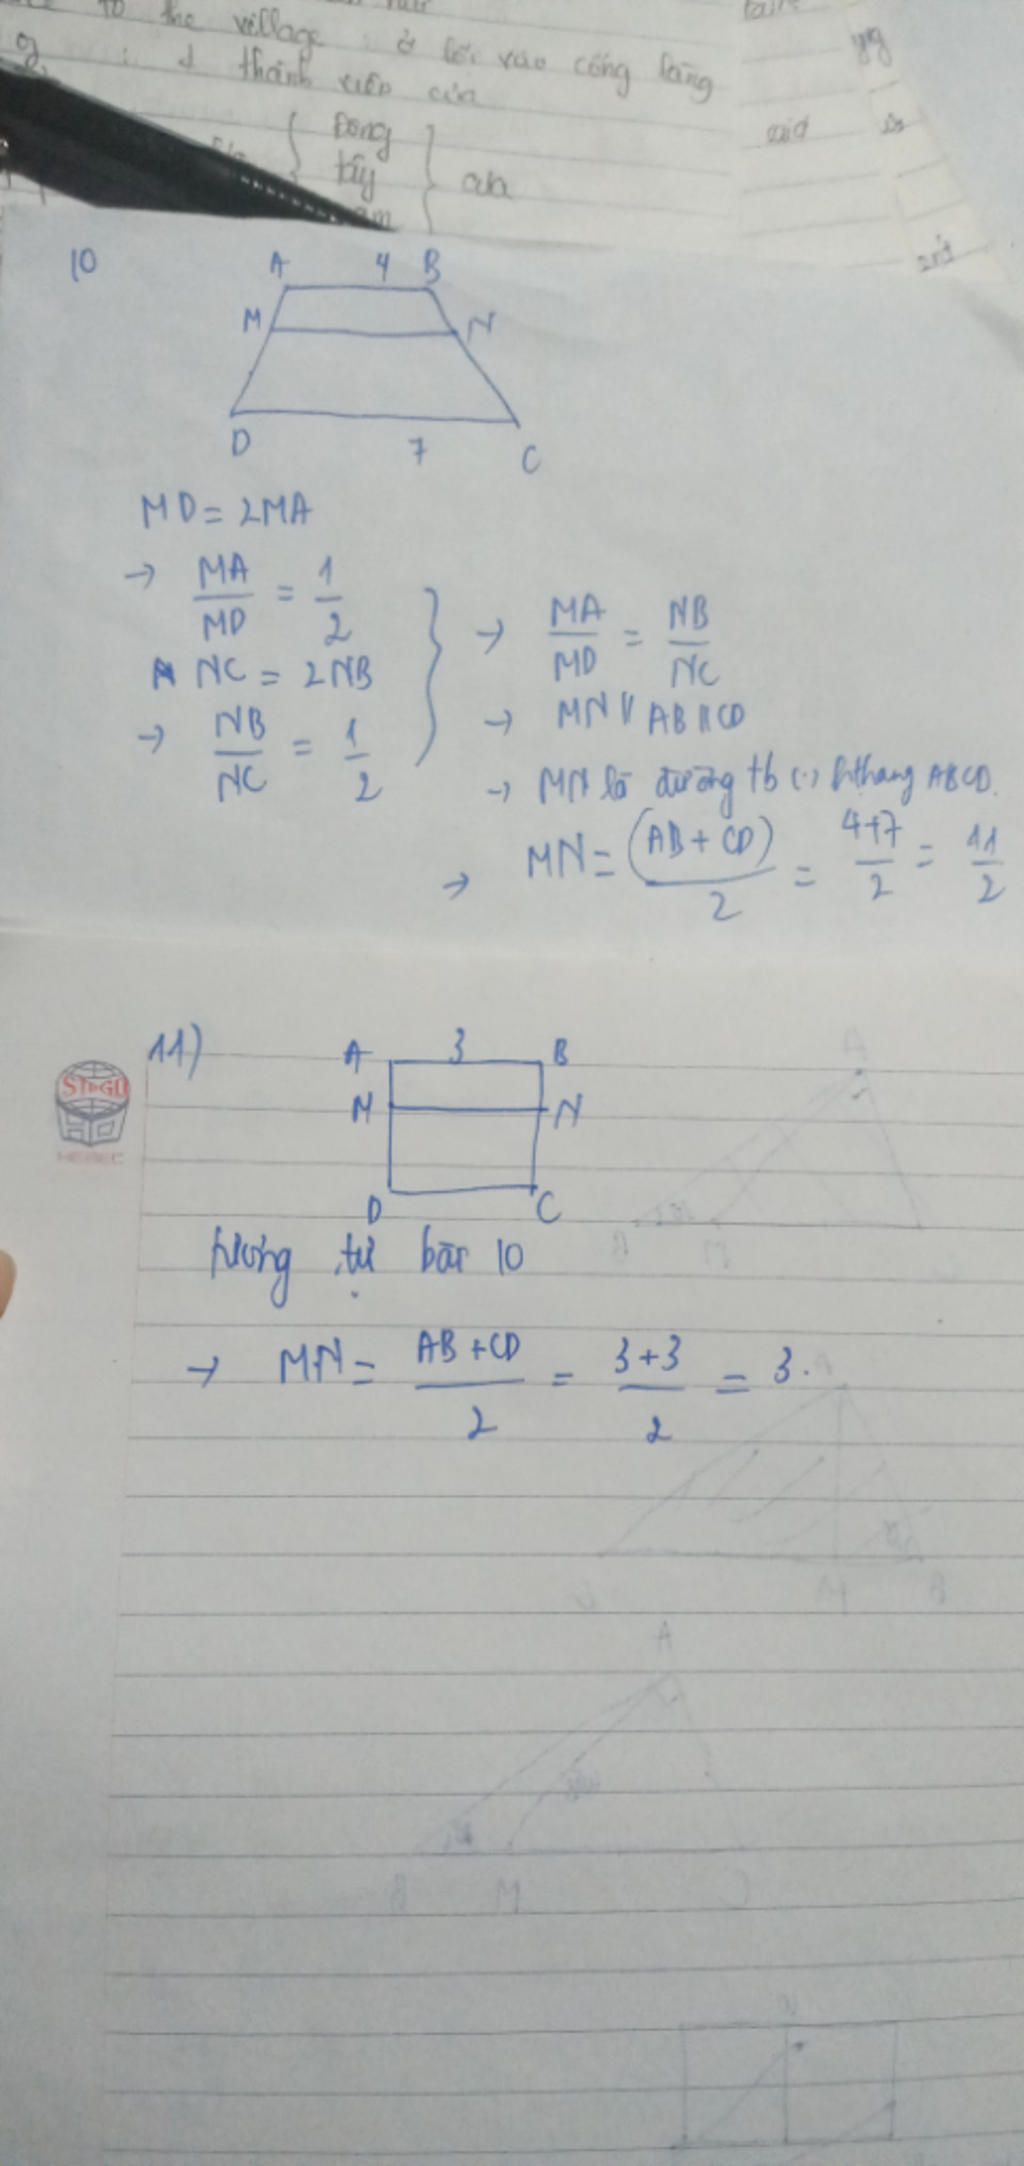 to the village : ở lối vào cổng làng
thành viên của
Đông
tây
của
said
10
A 4 B
M N
D 7 C
MD = 2MA
→ MA/MD = 1/2
NC = 2NB
→ NB/NC = 1/2
→ MA/MD = NB/NC
→ MN // AB // CD
→ MN là đường tb (·) hthang ABCD.
→ MN = (AB + CD)/2 = 4+7/2 = 11/2
11)
A 3 B
M N
D C
STEGU
HEBEC
tương tự bài 10
→ MN = AB + CD/2 = 3+3/2 = 3.